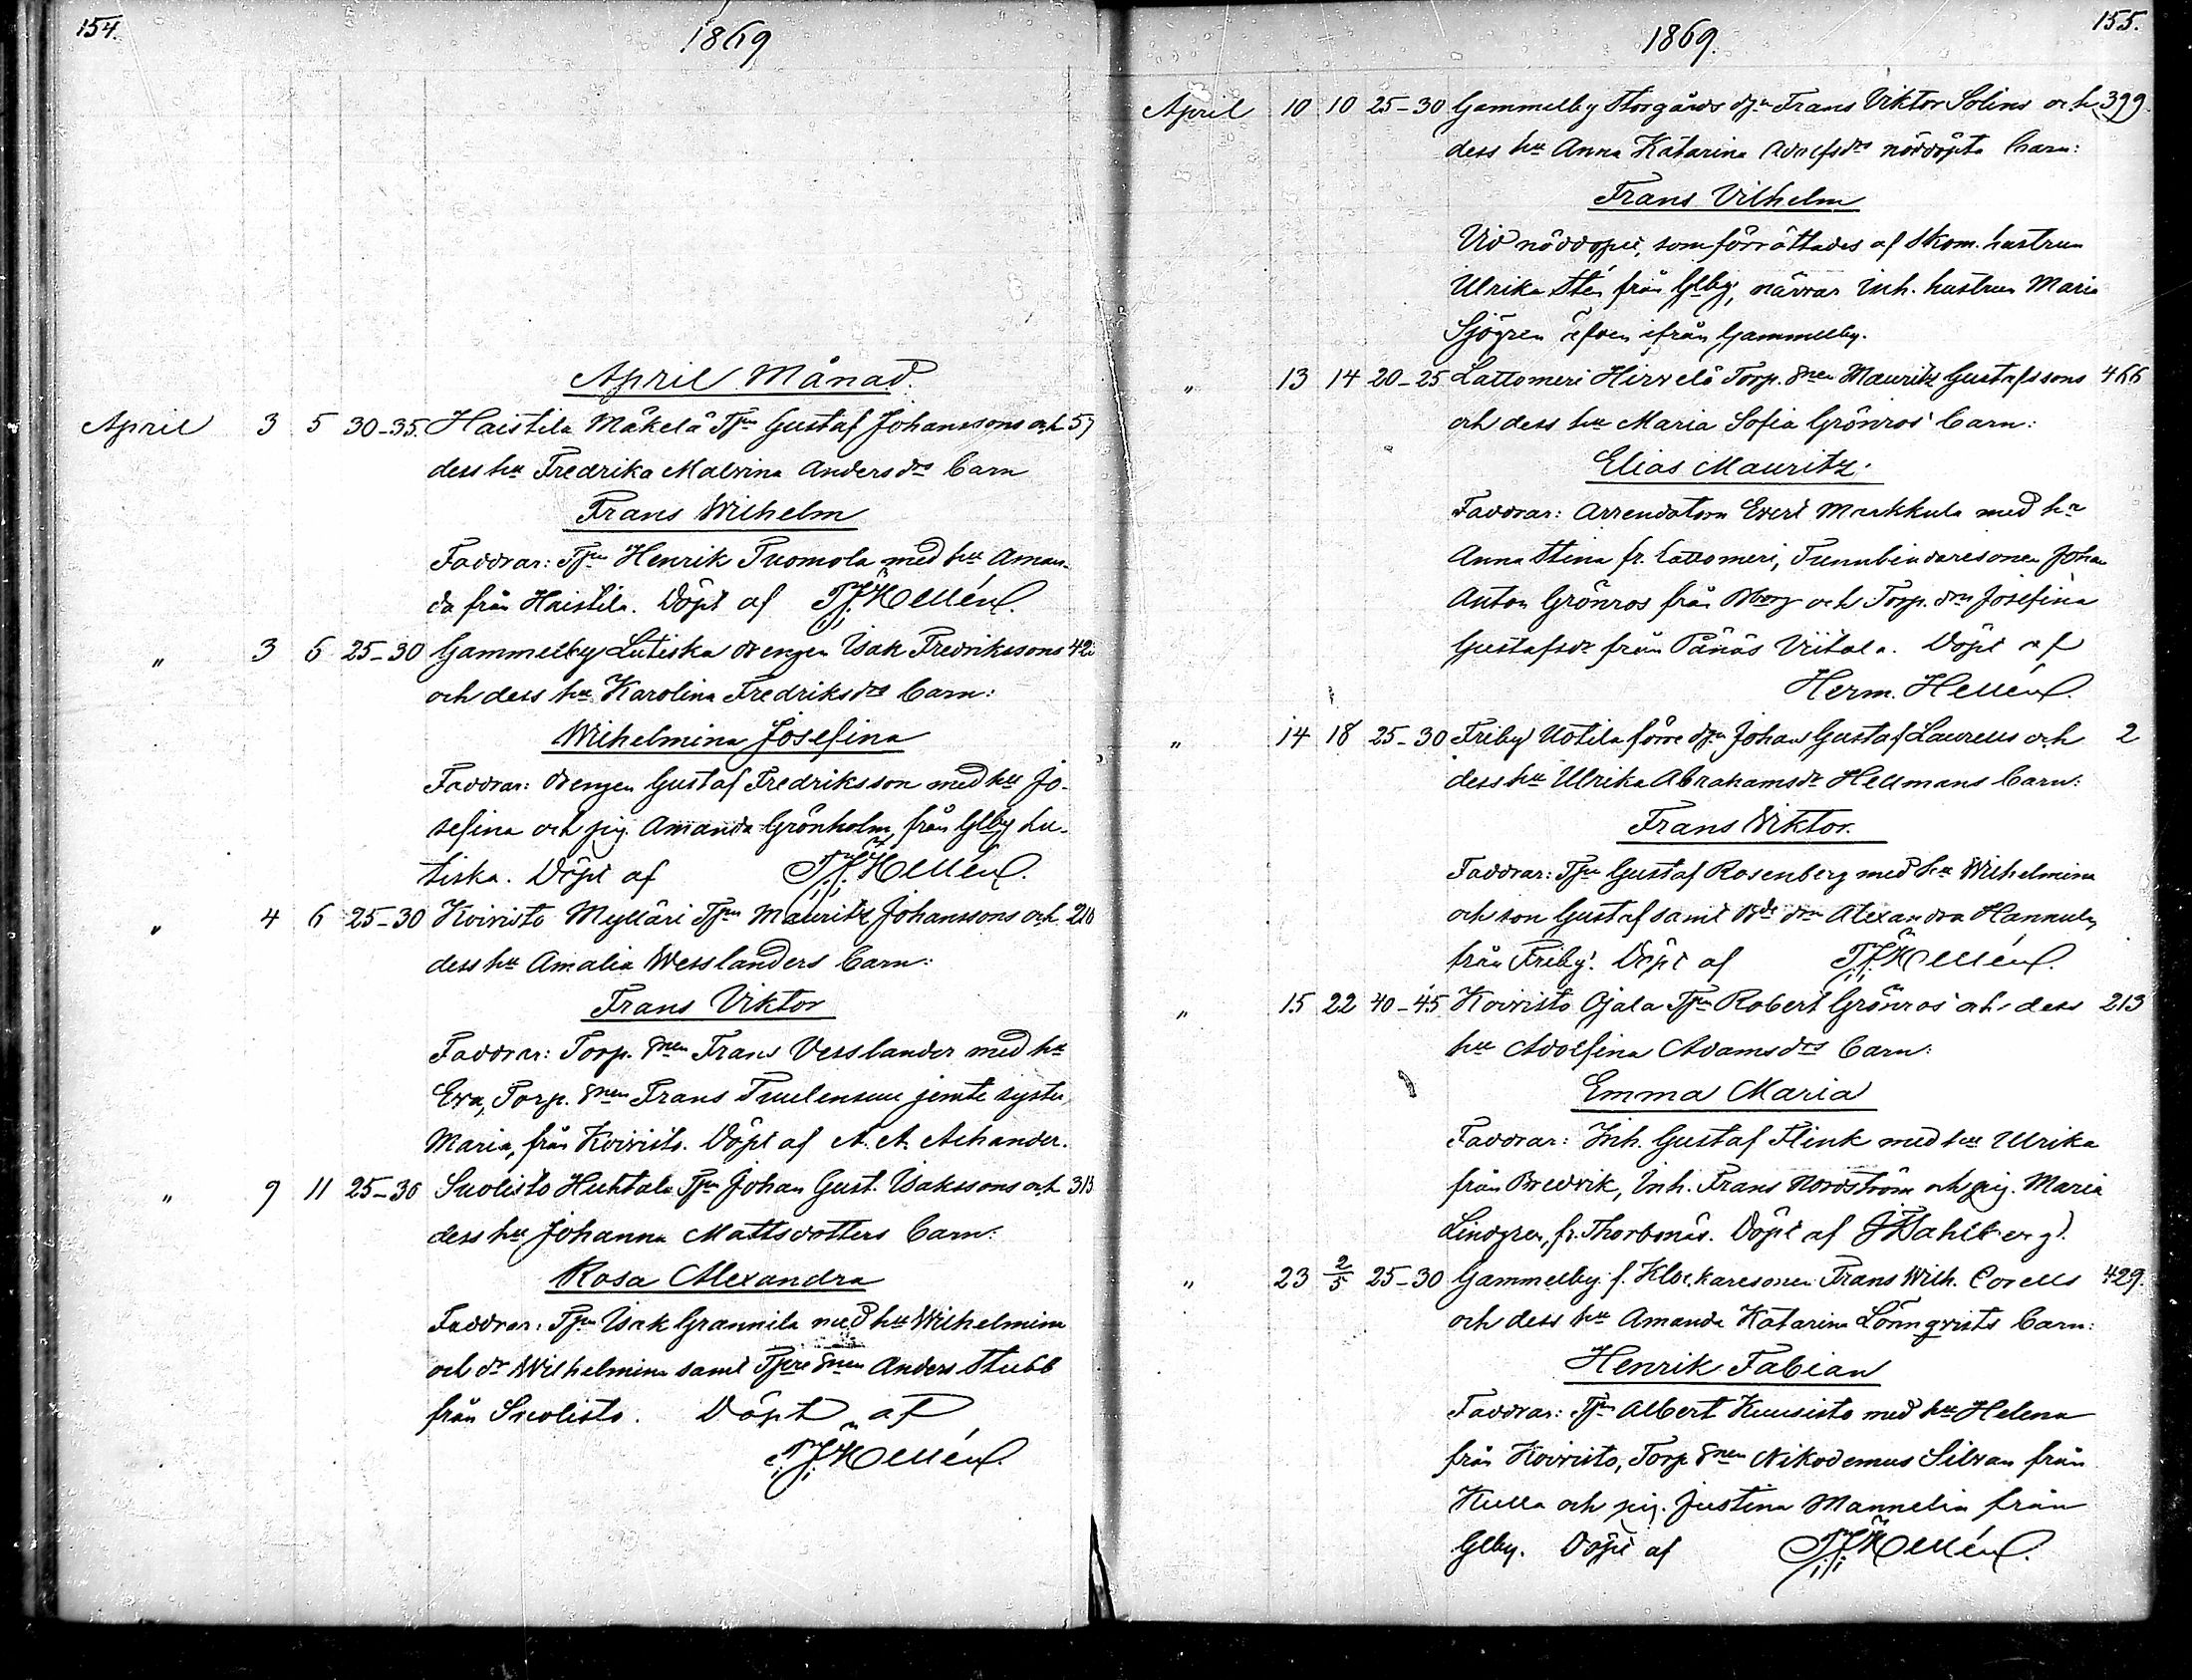 154.
1869
April Månad.
April 3 5 30-35. Haistila Mäkelä Tjm Gustaf Johanssons och 57
dess hu Fredrika Malvina Andersdrs Barn
Frans Wilhelm
Faddrar: Tjm Henrik Tuomola med hu Aman-
da från Haistila. Döpt af Hellén.
" 3 6 25-30 Gammelby Lutiska drengen Isak Fredrikssons
och dess hu Karolina Fredriksdrs Barn:
Wilhelmina Josefina
Faddrar: drengen Gustaf Fredriksson med hu Jo-
sefina och pig. Amanda Grönholm, från Glby Lu-
tiska. Döpt af Hellén.
" 4 6 25-30 Koivisto Mylläri Tjm Mauritz Johanssons och 210
dess hu Amalia Wesslanders Barn:
Frans Viktor
Faddrar: Torp. sonen Frans Vesslander med hu
Eva, Torp. sonen Frans jemte syster
Maria, från Koivisto. Döpt af A. A. Achander.
" 9 11 25-30 Suolisto Huhtala Tjm Johan Gust. Isakssons och 313
dess hu Johanna Mattsdotters Barn:
Rosa Alexandra
Faddrar: Tjm Isak Grannila med hu Wilhelmina
och dr Wilhelmina samt sonen Anders Stubb
från Suolisto. Döpt af
Hellén.
1869.
155.
April 10 10 25-30 Gammelby Storgårds djn Frans Viktor Solins och 399.
dess hu Anna Katarina Adolfsdrs nöddöpta Barn:
Frans Vilhelm
Vid nöddopet, som förrättades af Skom. hustrun
Ulrika Stén från Glby, närvar Inh. hustrun Maria
Sjögren äfven ifrån Gammelby.
" 13 14 20-25 Lattomeri Hirvelä Torp. sonen Mauritz Gustafssons 466
och dess hu Maria Sofia Grönros' Barn:
Elias Mauritz.
Faddrar: Arrendatorn Evert Markkula med hu
Anna Stina fr. Lattomeri, Tunnbindaresonen Johan
Anton Grönros från Bborg och Torp. drn Josefina
Gustafsdr från Pänäs Viitala. Döpt af
Herm. Hellén.
" 14 18 25-30 Friby Uotila förre djn Johan Gustaf Laurells och 2
dess hu Ulrika Abrahamsdr Hellmans Barn:
Frans Viktor.
Faddrar: Tjm Gustaf Rosenberg med hu Wilhelmina
och son Gustaf samt drn Alexandra Hannula,
från Friby. Döpt af Hellén.
" 15 22 40-45 Koivisto Ojala Tjm Robert Grönros' och dess 213
hu Adolfina Adamsdrs Barn:
Emma Maria
Faddrar: Inh. Gustaf Flink med hu Ulrika
från Bredvik, Inh. Frans Nordström och pig. Maria
Lindgren, fr. Thorbonäs. Döpt af Dahlberg.
" 23 2/5 25-30 Gammelby f. Klockaresonen Frans Wilh. Corells 429.
och dess hu Amanda Katarina Lönnqvists Barn:
Henrik Fabian
Faddrar: Tjm Albert Kuusisto med hu Helena
från Koivisto, Torp. sonen Nikodemus Silvan från
Kulla och pig. Justina Mannelin från
Glby. Döpt af Hellén.